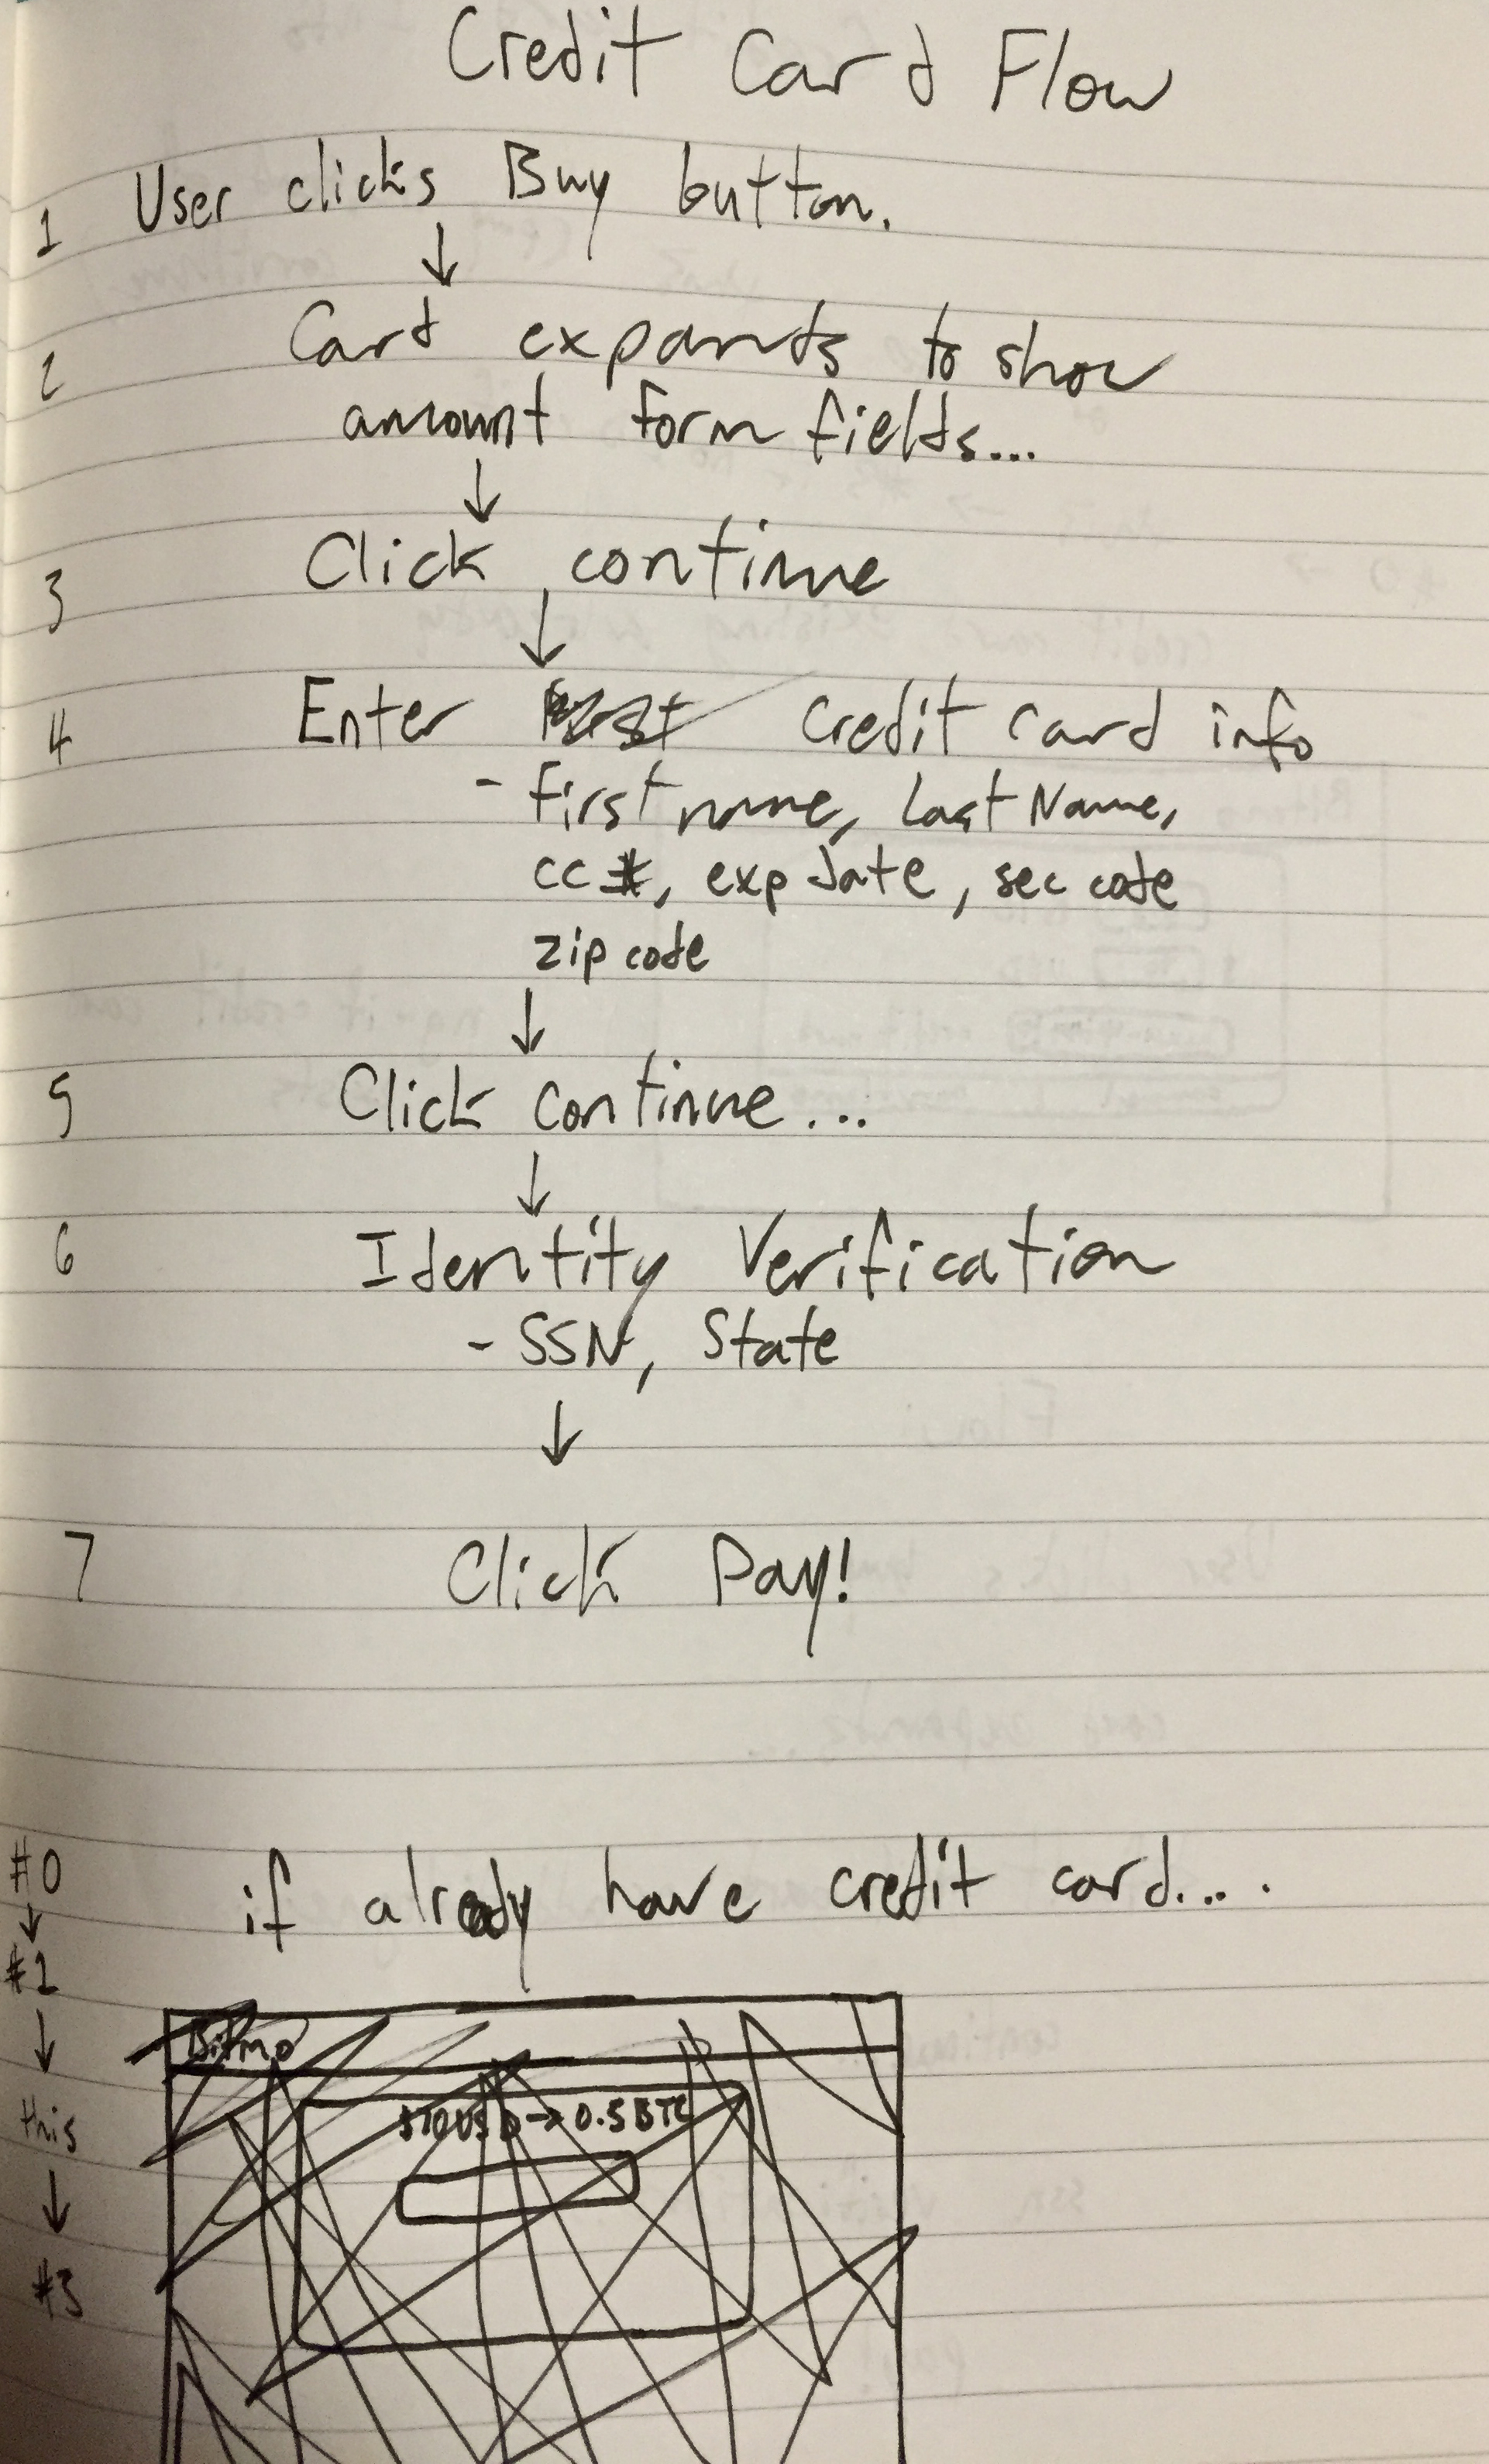 Credit Card Flow
1 User clicks Buy button.
↓
2 Card expands to show
amount form fields...
↓
3 Click continue
↓
4 Enter credit card info
- first name, Last Name,
cc #, exp date, sec code
zip code
↓
5 Click continue...
↓
6 Identity Verification
- SSN, State
↓
7 Click Pay!
#0 if already have credit card....
↓
#1
↓
this
↓
#3
Bitmo
$70 USD → 0.5 BTC